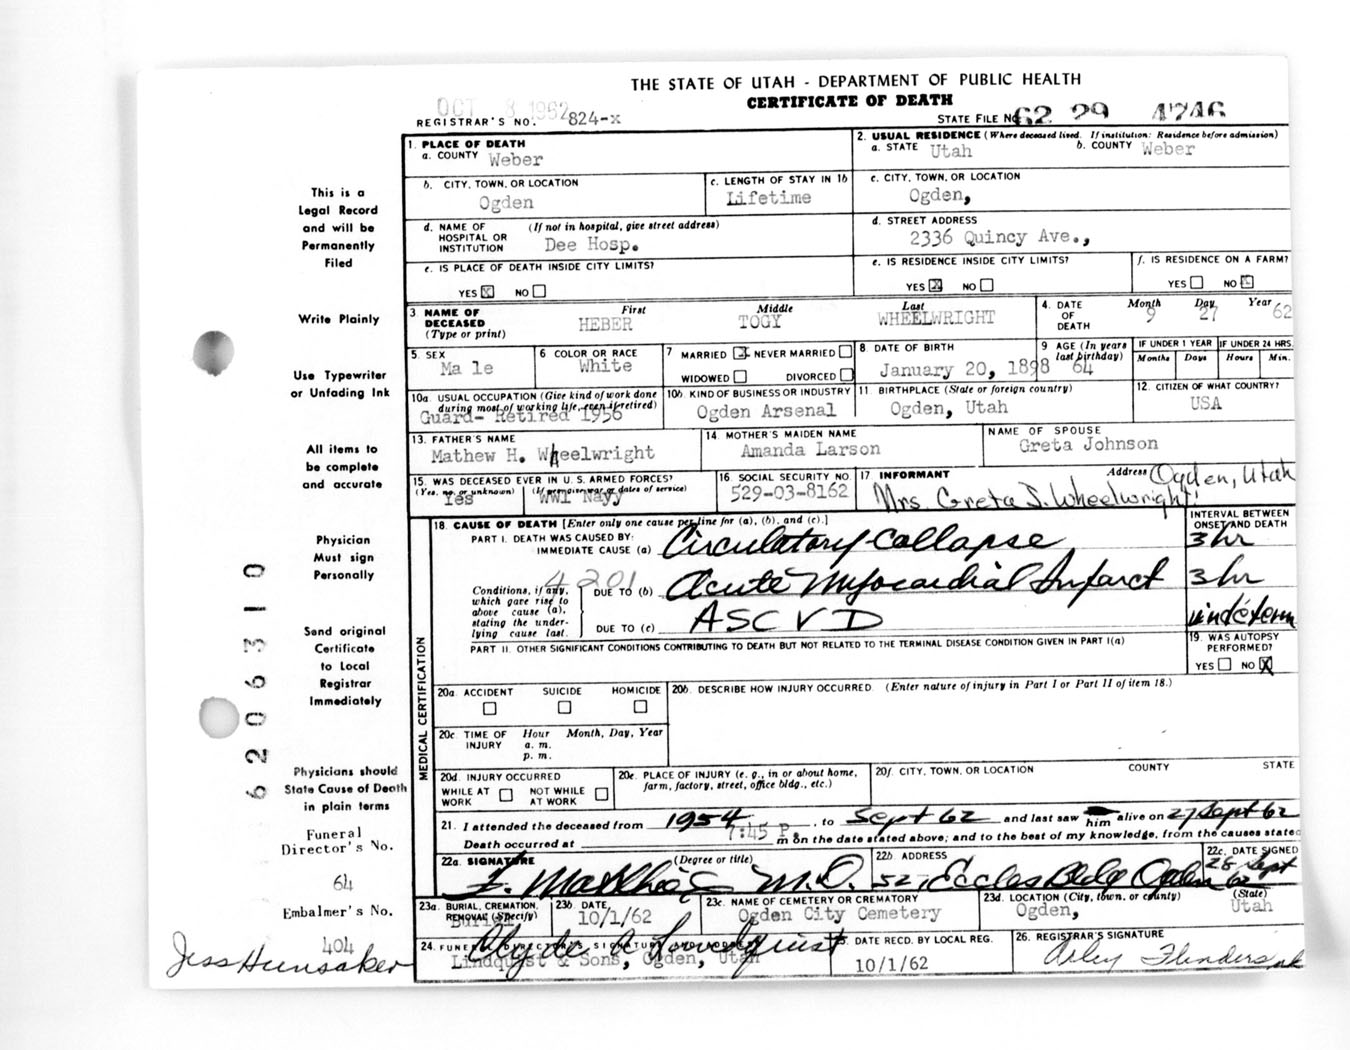 THE STATE OF UTAH - DEPARTMENT OF PUBLIC HEALTH
CERTIFICATE OF DEATH
OCT 8 1962
REGISTRAR'S NO. 824-x
STATE FILE NO. 62 29 4746
1. PLACE OF DEATH
a. COUNTY Weber
2. USUAL RESIDENCE (Where deceased lived. If institution: Residence before admission)
a. STATE Utah b. COUNTY Weber
b. CITY, TOWN, OR LOCATION
Ogden
c. LENGTH OF STAY IN 1b
Lifetime
c. CITY, TOWN, OR LOCATION
Ogden,
d. NAME OF HOSPITAL OR INSTITUTION (If not in hospital, give street address)
Dee Hosp.
d. STREET ADDRESS
2336 Quincy Ave.,
e. IS PLACE OF DEATH INSIDE CITY LIMITS?
YES X NO
e. IS RESIDENCE INSIDE CITY LIMITS?
YES X NO
f. IS RESIDENCE ON A FARM?
YES NO
3 NAME OF DECEASED (Type or print)
First Middle Last
HEBER TOGY WHEELWRIGHT
4. DATE OF DEATH
Month Day Year
9 27 62
5. SEX
Ma le
6 COLOR OR RACE
White
7 MARRIED X NEVER MARRIED
WIDOWED DIVORCED
8 DATE OF BIRTH
January 20, 1898
9 AGE (In years last birthday)
64
IF UNDER 1 YEAR
Months Days
IF UNDER 24 HRS.
Hours Min.
10a. USUAL OCCUPATION (Give kind of work done during most of working life, even if retired)
Guard- Retired 1956
10b KIND OF BUSINESS OR INDUSTRY
Ogden Arsenal
11 BIRTHPLACE (State or foreign country)
Ogden, Utah
12. CITIZEN OF WHAT COUNTRY?
USA
13. FATHER'S NAME
Mathew H. Wheelwright
14. MOTHER'S MAIDEN NAME
Amanda Larson
NAME OF SPOUSE
Greta Johnson
15. WAS DECEASED EVER IN U. S. ARMED FORCES?
(Yes, no, or unknown) (If yes, give war or dates of service)
Yes WW1 Navy
16 SOCIAL SECURITY NO.
529-03-8162
17 INFORMANT Address
Mrs. Greta J. Wheelwright Ogden, Utah
18. CAUSE OF DEATH [Enter only one cause per line for (a), (b), and (c).]
INTERVAL BETWEEN ONSET AND DEATH
PART I. DEATH WAS CAUSED BY:
IMMEDIATE CAUSE (a) Circulatory Collapse 3 hr
Conditions, if any, which gave rise to above cause (a), stating the underlying cause last.
4201
DUE TO (b) Acute Myocardial Infarct 3 hr
DUE TO (c) ASCVD indeterm
PART II. OTHER SIGNIFICANT CONDITIONS CONTRIBUTING TO DEATH BUT NOT RELATED TO THE TERMINAL DISEASE CONDITION GIVEN IN PART I(a)
19. WAS AUTOPSY PERFORMED?
YES NO X
MEDICAL CERTIFICATION
20a. ACCIDENT SUICIDE HOMICIDE
20b. DESCRIBE HOW INJURY OCCURRED (Enter nature of injury in Part I or Part II of item 18.)
20c. TIME OF INJURY
Hour Month, Day, Year
a. m.
p. m.
20d. INJURY OCCURRED
WHILE AT WORK NOT WHILE AT WORK
20e. PLACE OF INJURY (e. g., in or about home, farm, factory, street, office bldg., etc.)
20f. CITY, TOWN, OR LOCATION COUNTY STATE
21. I attended the deceased from 1954, to Sept 62 and last saw him alive on 27 Sept 62
Death occurred at 7:45 P. m on the date stated above; and to the best of my knowledge, from the causes stated
22a. SIGNATURE (Degree or title)
M.D.
22b ADDRESS
527 Eccles Bldg Ogden
22c. DATE SIGNED
28 Sept 62
23a. BURIAL, CREMATION, REMOVAL (Specify)
Burial
23b DATE
10/1/62
23c. NAME OF CEMETERY OR CREMATORY
Ogden City Cemetery
23d. LOCATION (City, town, or county) (State)
Ogden, Utah
24. FUNERAL DIRECTOR'S SIGNATURE AND ADDRESS
Clyde R Lindquist
Lindquist & Sons, Ogden, Utah
25. DATE RECD. BY LOCAL REG.
10/1/62
26. REGISTRAR'S SIGNATURE
This is a
Legal Record
and will be
Permanently
Filed
Write Plainly
Use Typewriter
or Unfading Ink
All items to
be complete
and accurate
Physician
Must sign
Personally
Send original
Certificate
to Local
Registrar
Immediately
Physicians should
State Cause of Death
in plain terms
Funeral
Director's No.
64
Embalmer's No.
404
Jess Hunsaker
6206310